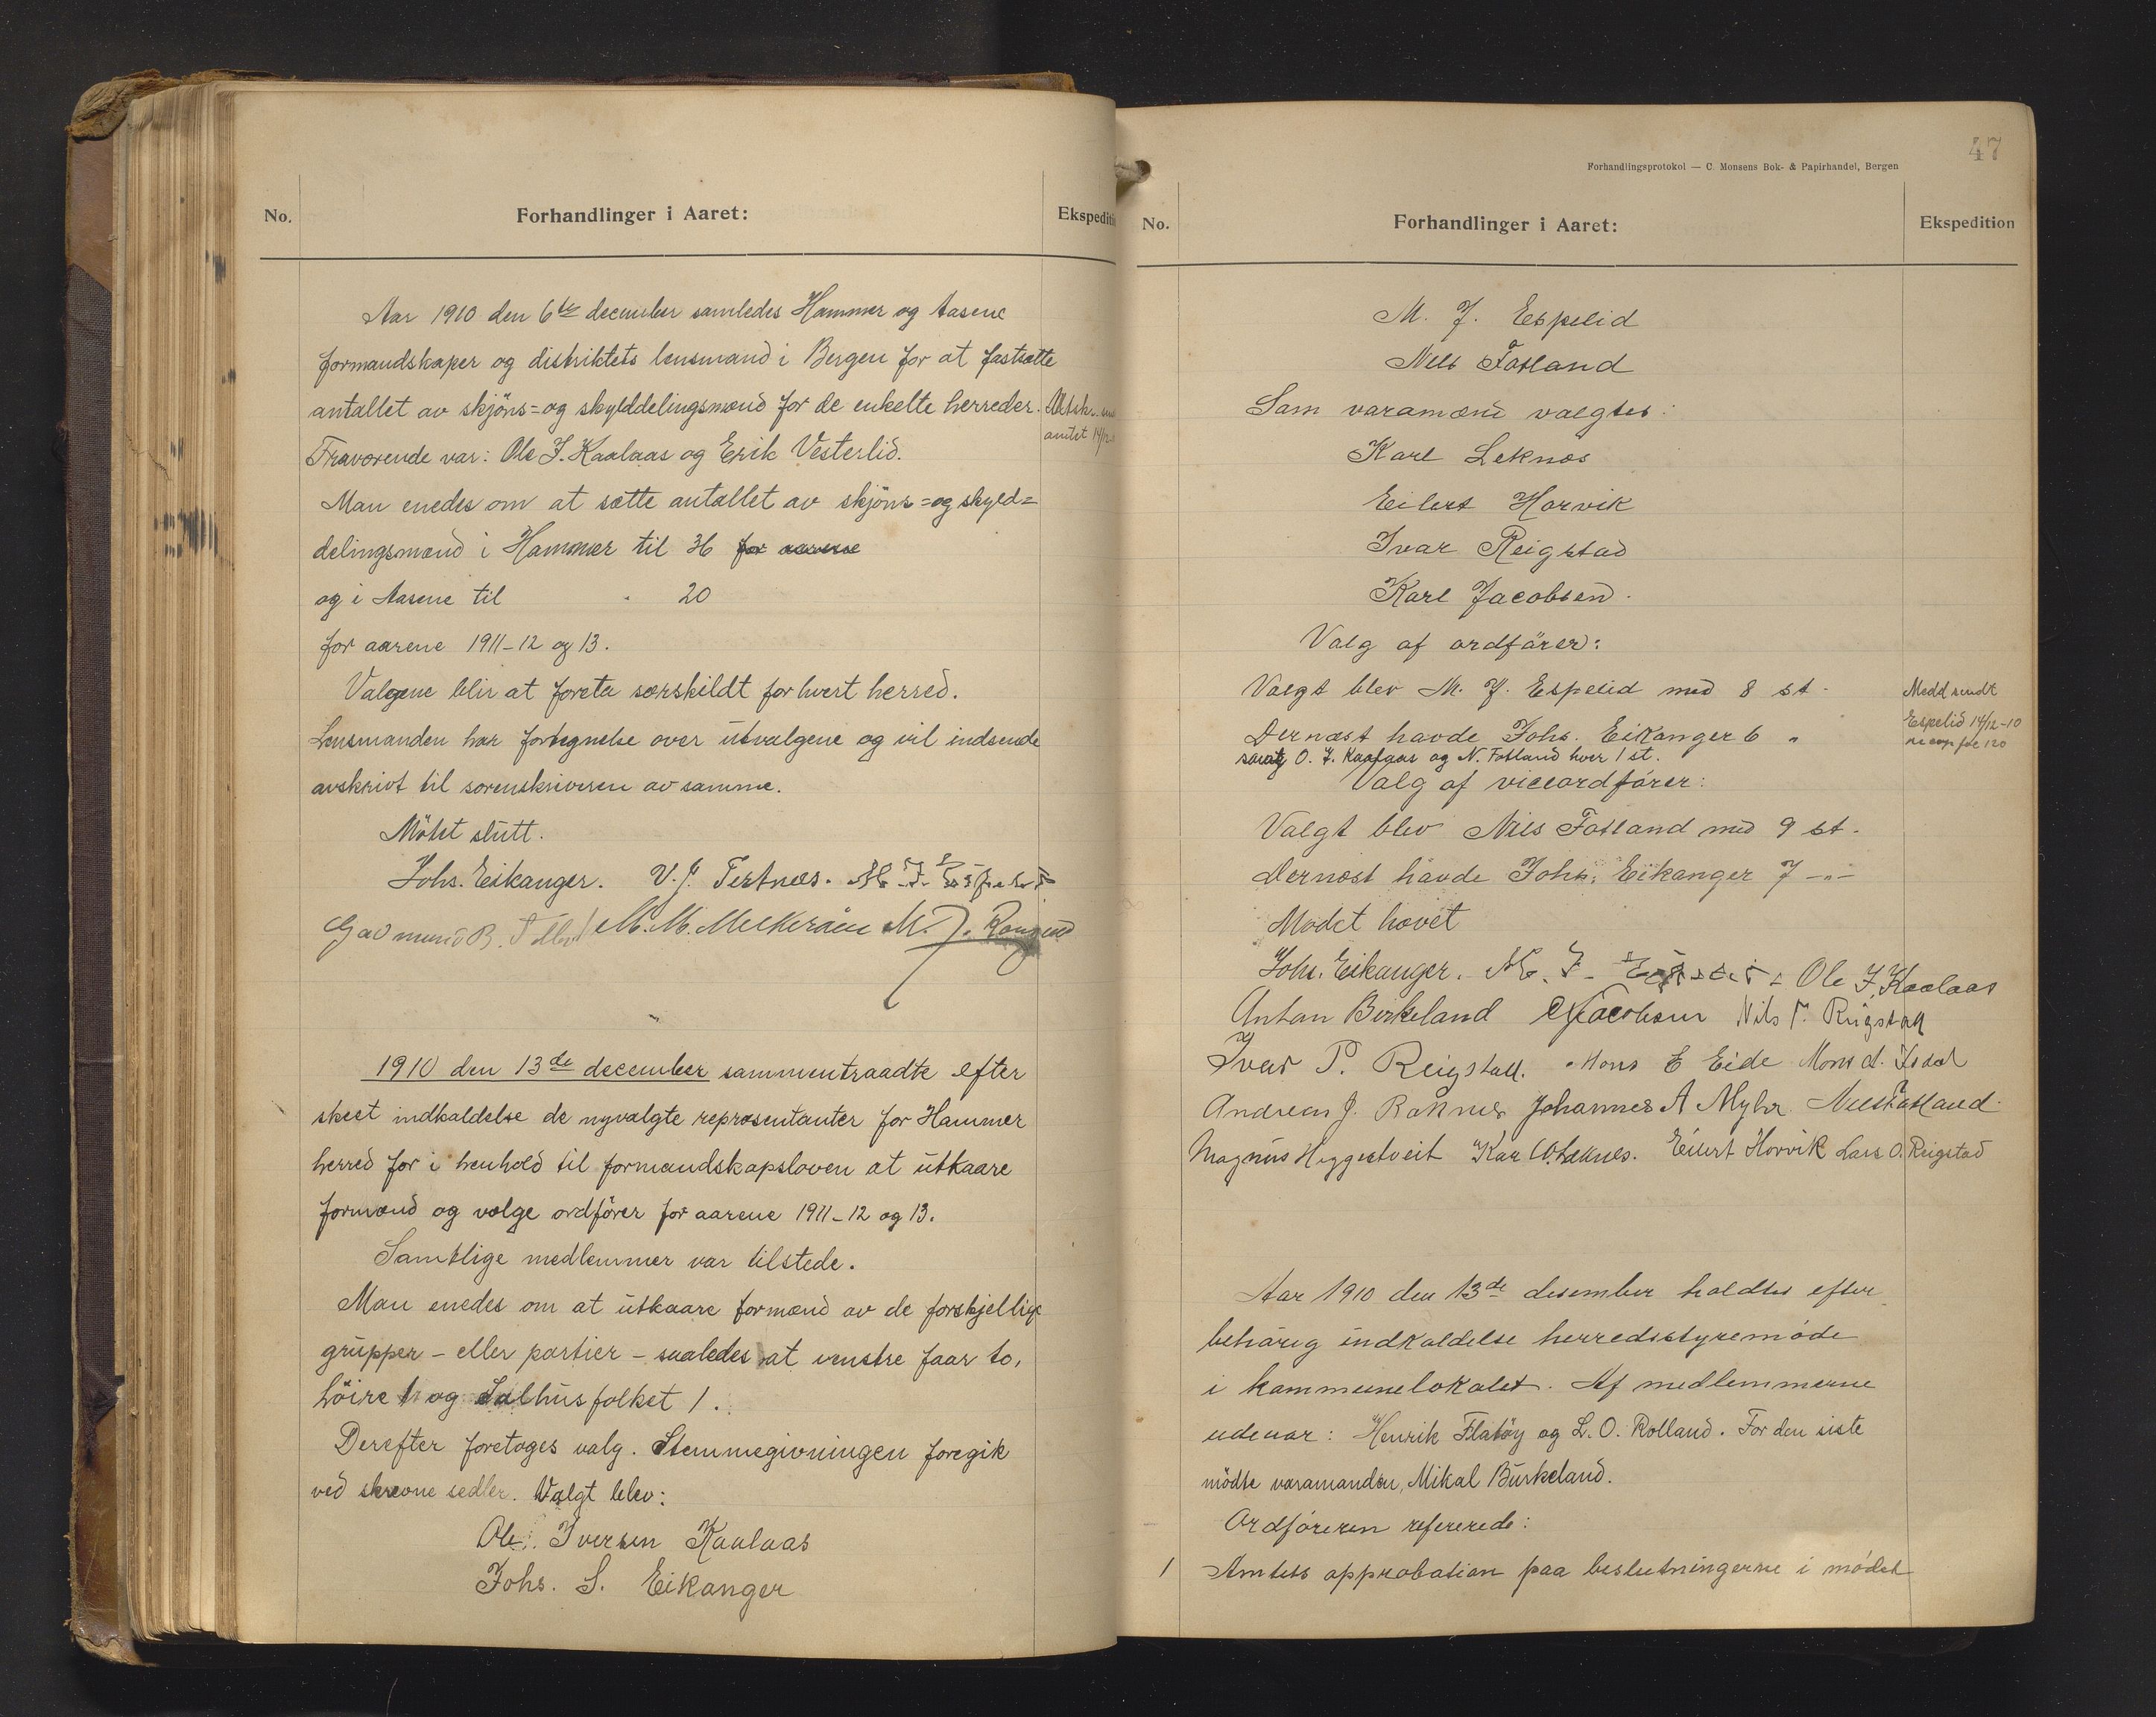 No.
Forhandlinger i Aaret:
Ekspediti
Aar 1910 den 6te december samledes Hammer og Aasene
formandskaper og distriktets lensmand i Bergen for at fastsætte
antallet av skjöns- og skylddelingsmænd for de enkelte herreder.
Utsk.
amtet 14/12
Fraværende var: Ole J. Kaalaas og Erik Vesterlid.
Man enedes om at sætte antallet av skjöns- og skyld=
delingsmænd i Hammer til 36 for aarene
og i Aasene til " 20
for aarene 1911-12 og 13.
Valgene blir at foreta særskildt for hvert herred.
Lensmanden har fortegnelse over utvalgene og vil indsende
avskrivt til sorenskriveren av samme.
Mötet slutt.
Johs. Eikanger. V. J. Tertnæs. M. J. Espelid
M. M. Melkeråen M. J.
1910 den 13de december sammentraadte efter
skeet indkaldelse de nyvalgte repræsentanter for Hammer
herred for i henhold til formandskapsloven at utkaare
formænd og vælge ordförer for aarene 1911-12 og 13.
Samtlige medlemmer var tilstede.
Man enedes om at utkaare formænd av de forskjellige
grupper - eller partier - saaledes at venstre faar to,
höire 1 og Salhusfolket 1.
Derefter foretoges valg. Stemmegivningen foregik
ved skrevne sedler. Valgt blev:
Ole Iversen Kaalaas
Johs. S. Eikanger
47
Forhandlingsprotokol — C. Monsens Bok- & Papirhandel, Bergen
No.
Forhandlinger i Aaret:
Ekspedition
M. J. Espelid
Nils Fotland
Som varamænd valgtes:
Karl Leknes
Eilert Horvik
Ivar Reigstad
Karl Jacobsen.
Valg af ordförer:
Valgt blev M. J. Espelid med 8 st.
Medd sendt
Dernæst havde Johs. Eikanger 6 "
Espelid 14/12-10
samt O. J. Kaalaas og N. Fotland hver 1 st.
Valg af viceordförer:
Valgt blev Nils Fotland med 9 st.
Dernæst havde Johs. Eikanger 7 -"-
Mødet hævet
Johs. Eikanger. M. J. Espelid Ole J. Kaalaas
Anton Birkeland Jacobsen Nils J. Reigstad
Ivar P. Reigstad. Mons E Eide Mons A. Isdal
Andreas J. Raknes Johannes A Myhr Nils Fotland.
Magnus Heggertveit Karl O. Leknes. Eilert Horvik Lars O. Reigstad
Aar 1910 den 13de desember holdtes efter
behørig indkaldelse herredsstyremøde
i kommunelokalet. Af medlemmerne
udevar: Henrik Flatöy og L. O. Rolland. For den siste
mödte varamanden, Mikal Burkeland.
Ordføreren refererede:
1 Amtets approbation paa beslutningerne i mødet